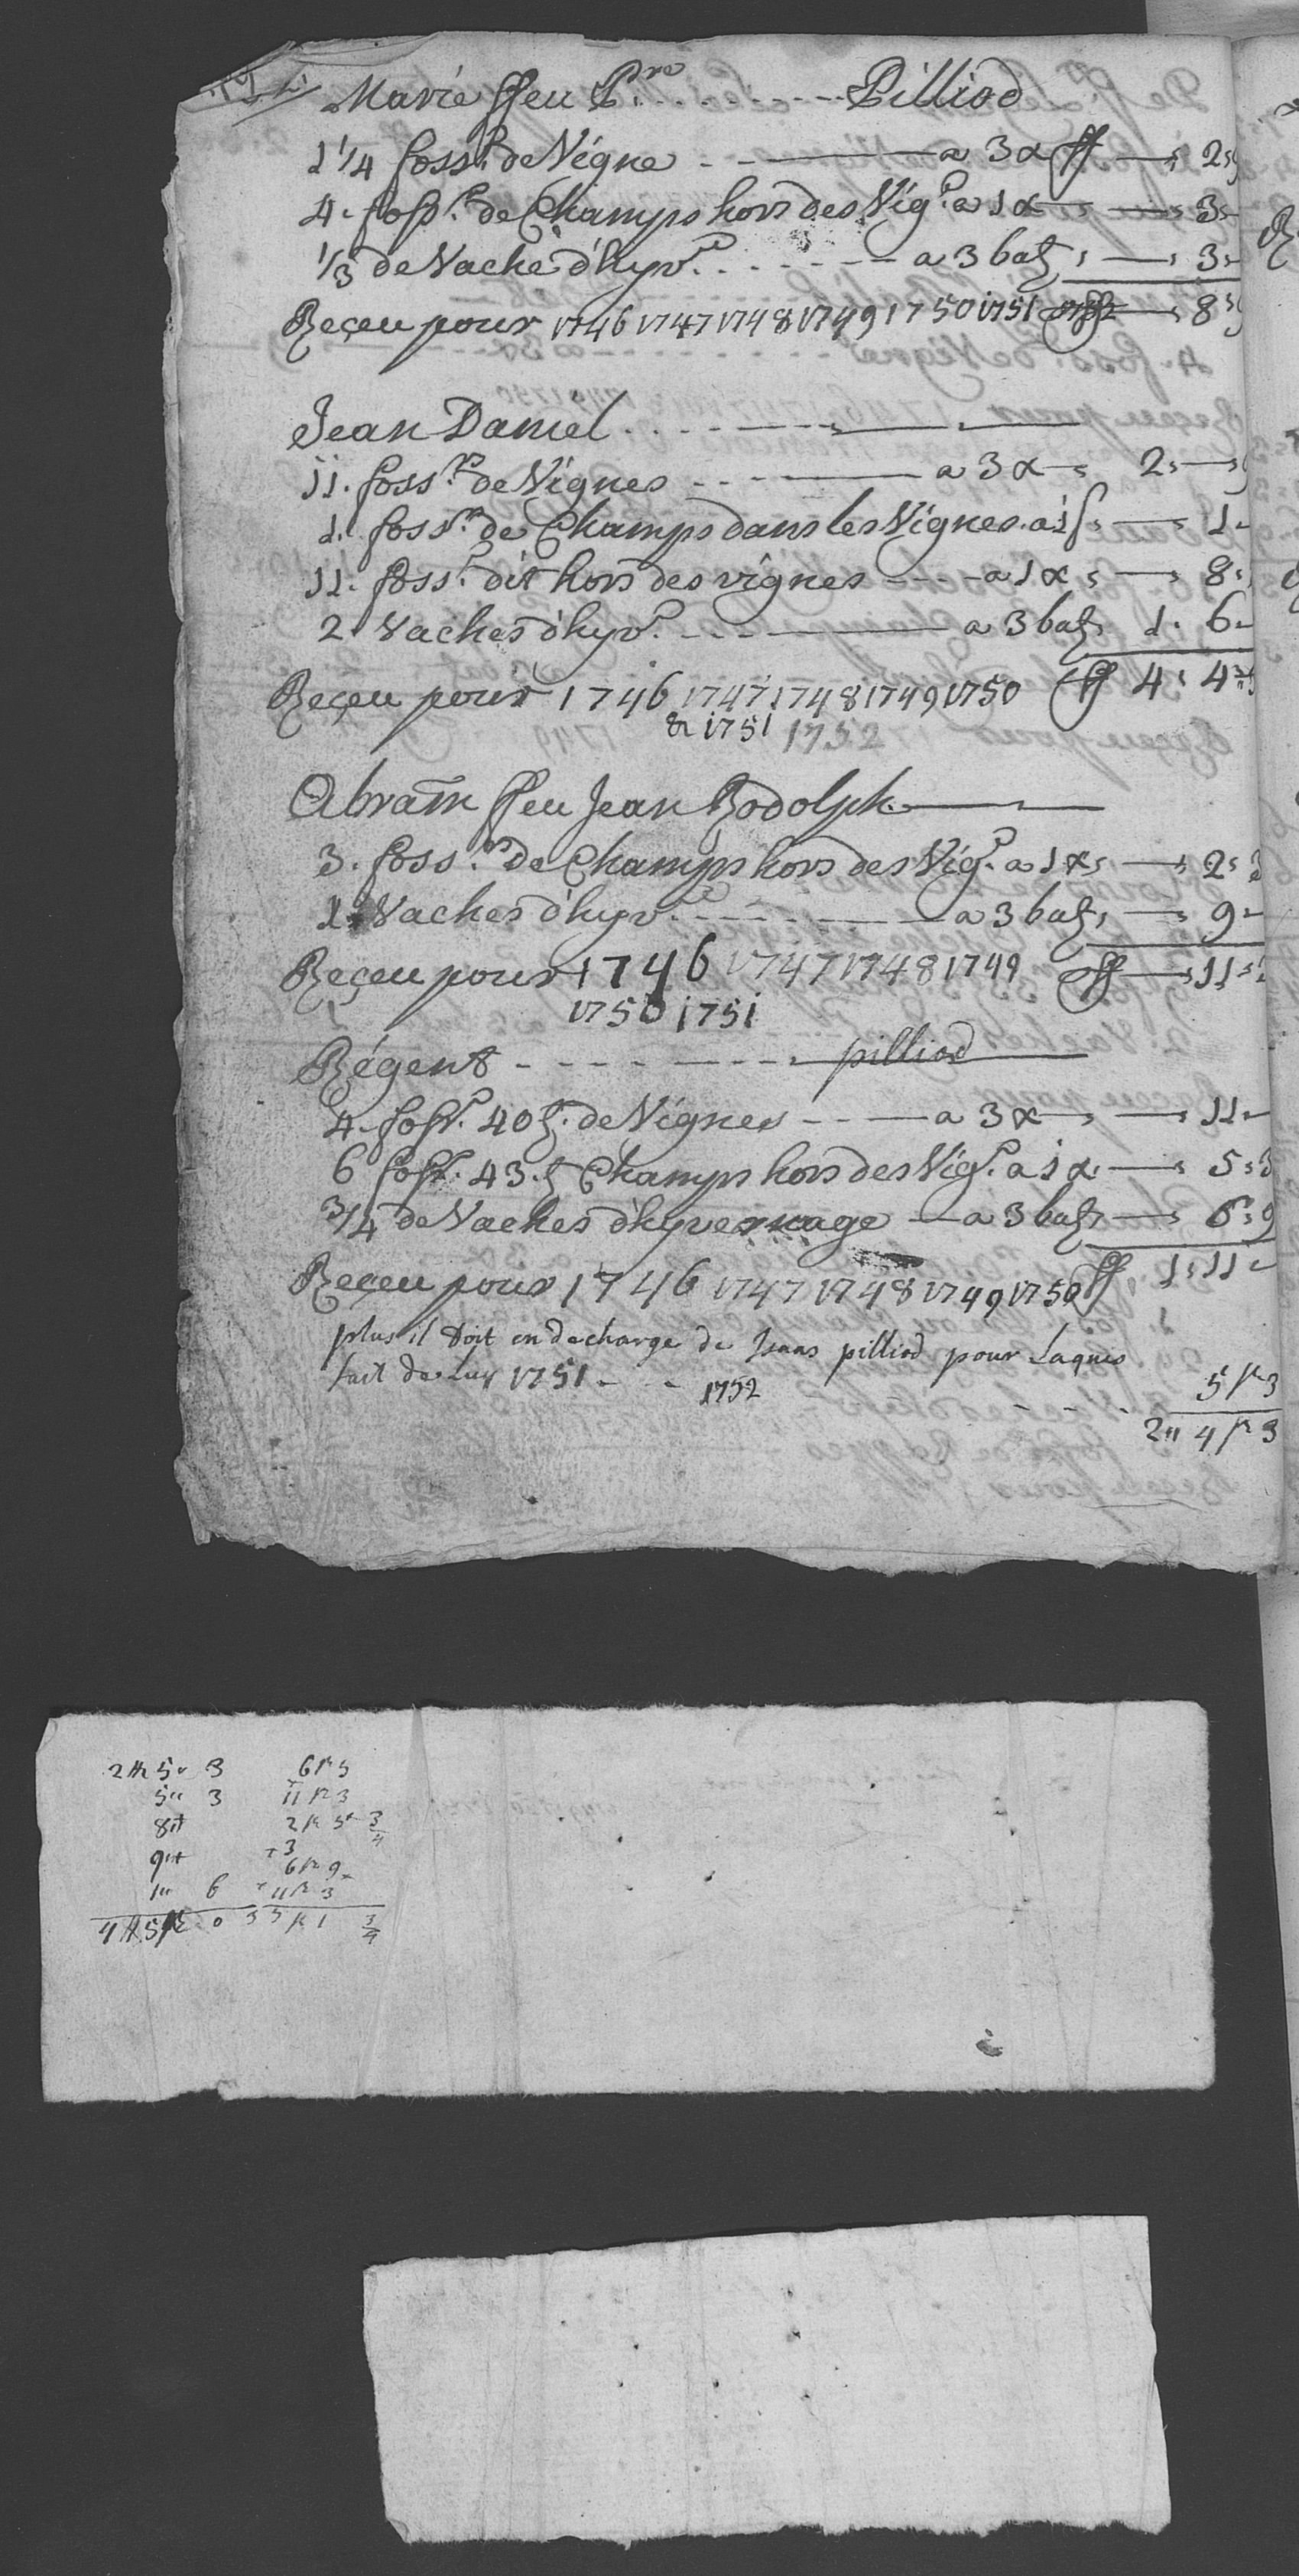 Marie ffeu P.re Pilliod
1 1/4 foss.r de Vigne a 3 x ff 2
4. foss.r de Champs hors des Vig.e a 1 x 3
1/3 de Vache d'hyv.e a 3 batz 3
Reçeu pour 1746 1747 1748 1749 1750 1751 ff 8
Jean Daniel
11. foss.rs de Vignes a 3 x 2
1. foss.r de Champs dans les Vignes a 1 s 1
11. foss.r dit hors des vignes a 1 x 8
2. Vaches d'hyv.e a 3 batz 1. 6
Reçeu pour 1746 1747 1748 1749 1750 ff 4 4
& 1751 1752
Abram ffeu Jean Rodolph
3. foss.rs de Champs hors des Vig.e a 1 x 2 3
1. Vaches d'hyv.e a 3 batz 9
Reçeu pour 1746 1747 1748 1749 ff 11
1750 1751
Régent pilliod
4. foss.r 40 t. de Vignes a 3 x 11
6 foss.r 43. t Champs hors des Vig.e a 1 x 5 3
3/4 de Vaches d'hyvernage a 3 batz 6 9
Reçeu pour 1746 1747 1748 1749 1750 ff 1 11
plus il Doit en decharge de Isaac pilliod pour Laques
fait de Luy 1751 1752 5 3
2 4 3
2 5 3 6 5
5 3 11 3
8 2 5 3/4
9 +3
6 9
1 6 11 3
4 5 0 3 5 1 3/4